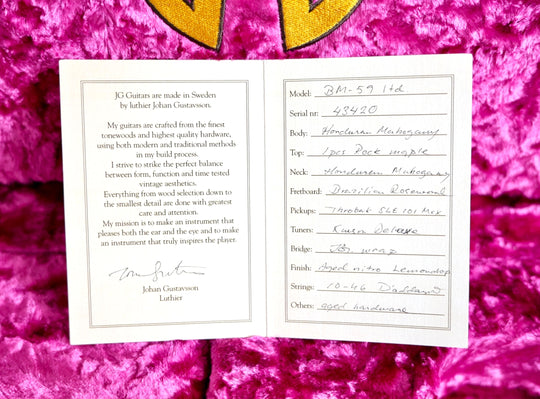 JG Guitars are made in Sweden
by luthier Johan Gustavsson.
My guitars are crafted from the finest
tonewoods and highest quality hardware,
using both modern and traditional methods
in my build process.
I strive to strike the perfect balance
between form, function and time tested
vintage aesthetics.
Everything from wood selection down to
the smallest detail are done with greatest
care and attention.
My mission is to make an instrument that
pleases both the ear and the eye and to make
an instrument that truly inspires the player.
Johan Gustavsson
Luthier
Model: BM-59 ltd
Serial nr: 43420
Body: Honduran Mahogany
Top: 1pcs Rock maple
Neck: Honduran Mahogany
Fretboard: Brazilian Rosewood
Pickups: Throbak SLE 101 MXV
Tuners: Kluson Deluxe
Bridge: wrap
Finish: Aged nitro Lemondrop
Strings: 10-46 D'addario
Others: aged hardware